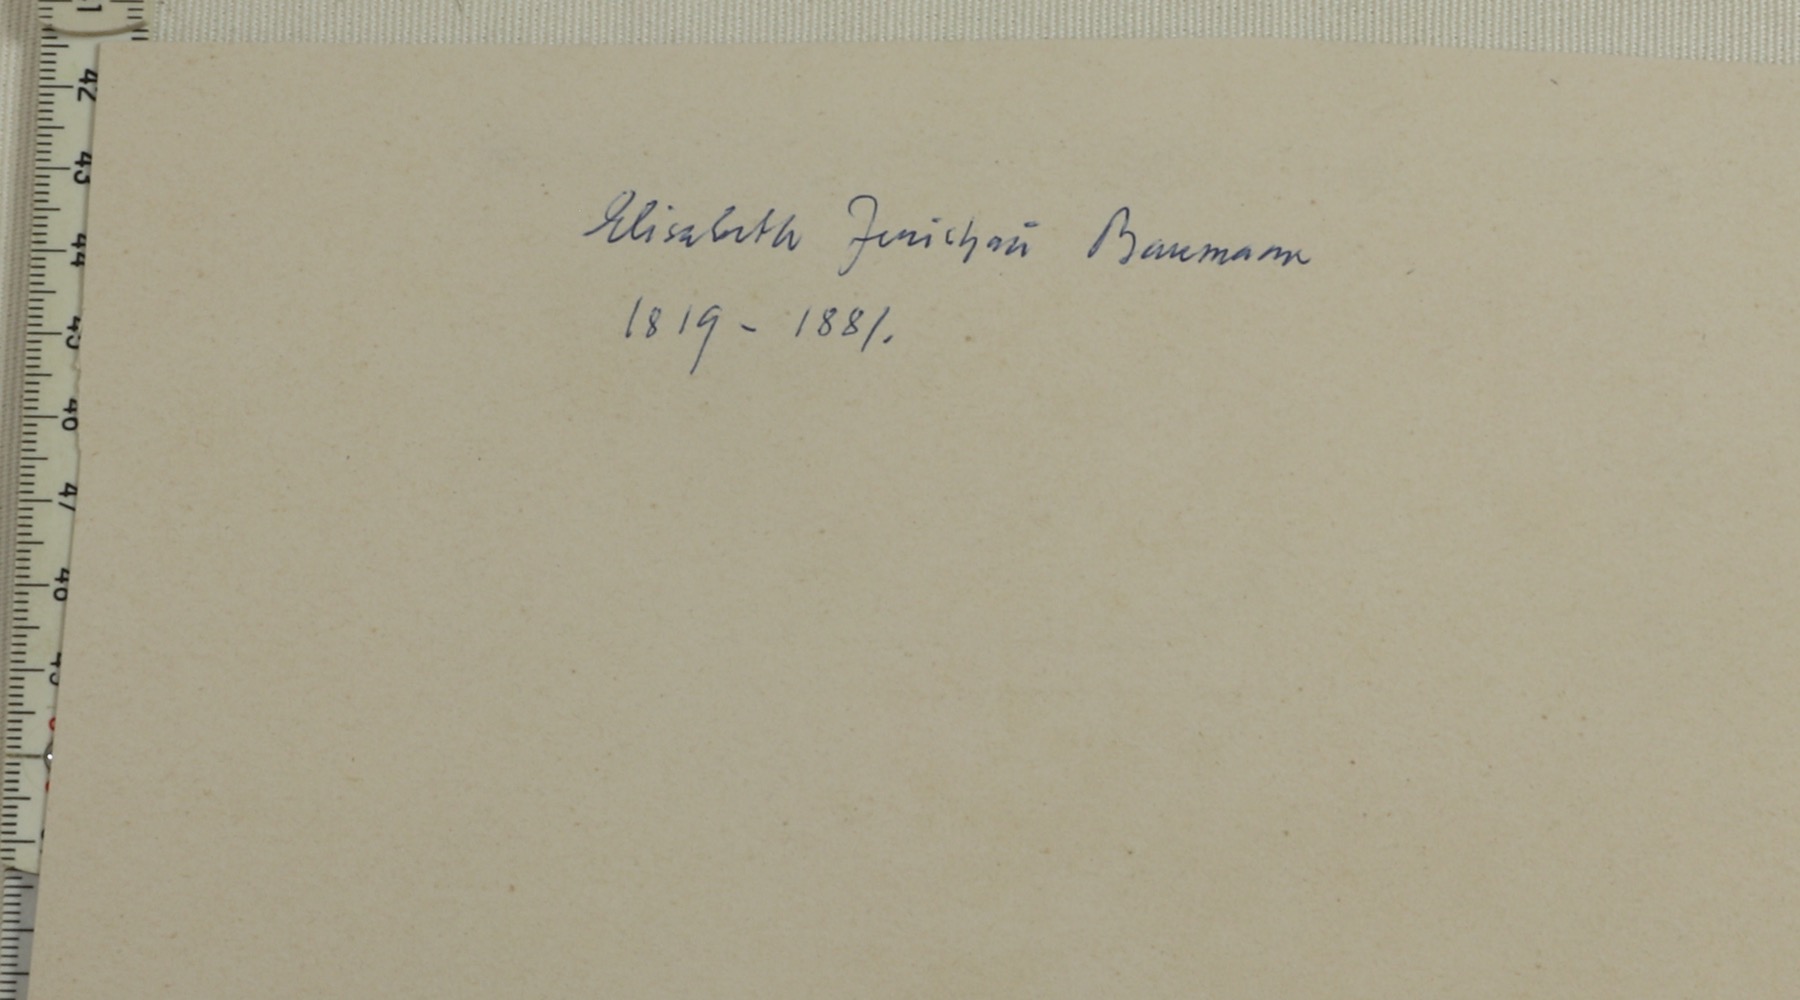 Elisabeth Jerichau Baumann
1819 - 1881.
42
43
44
45
47